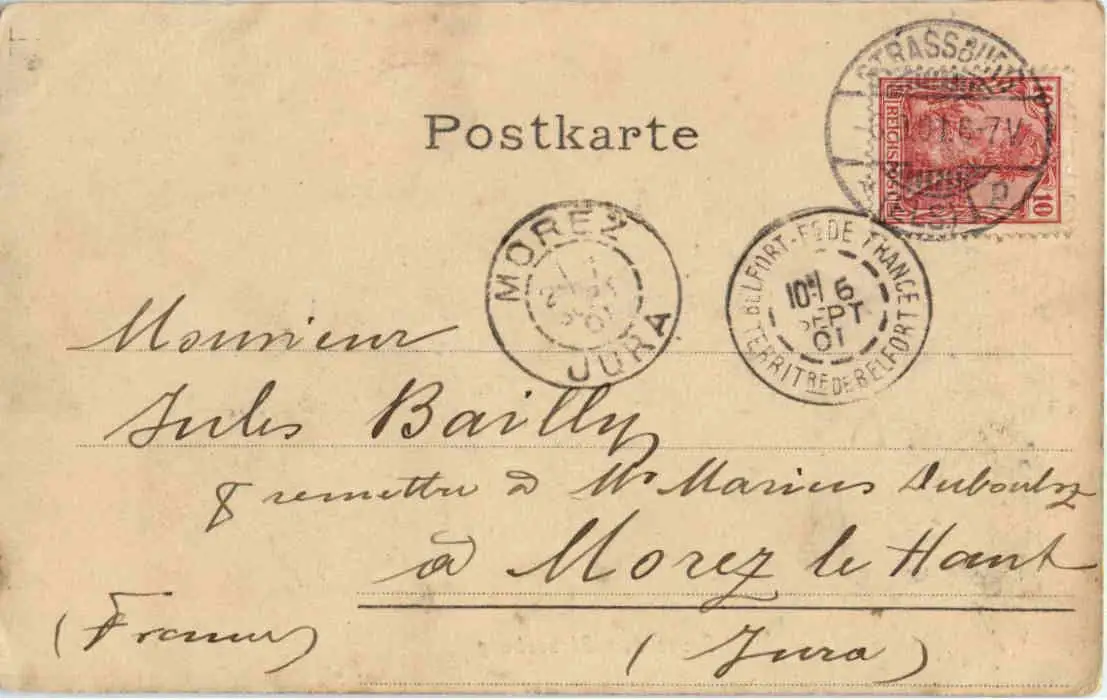 Postkarte
STRASSBURG
6-7V.
(ELS)
REICHSPOST
10
MOREZ
01
JURA
BELFORT-FS DE FRANCE
10M 6
SEPT
01
TERRITRE DE BELFORT
Monsieur
Jules Bailly
remettre à Mr Marius
à Morez le Haut
(France)
(Jura)